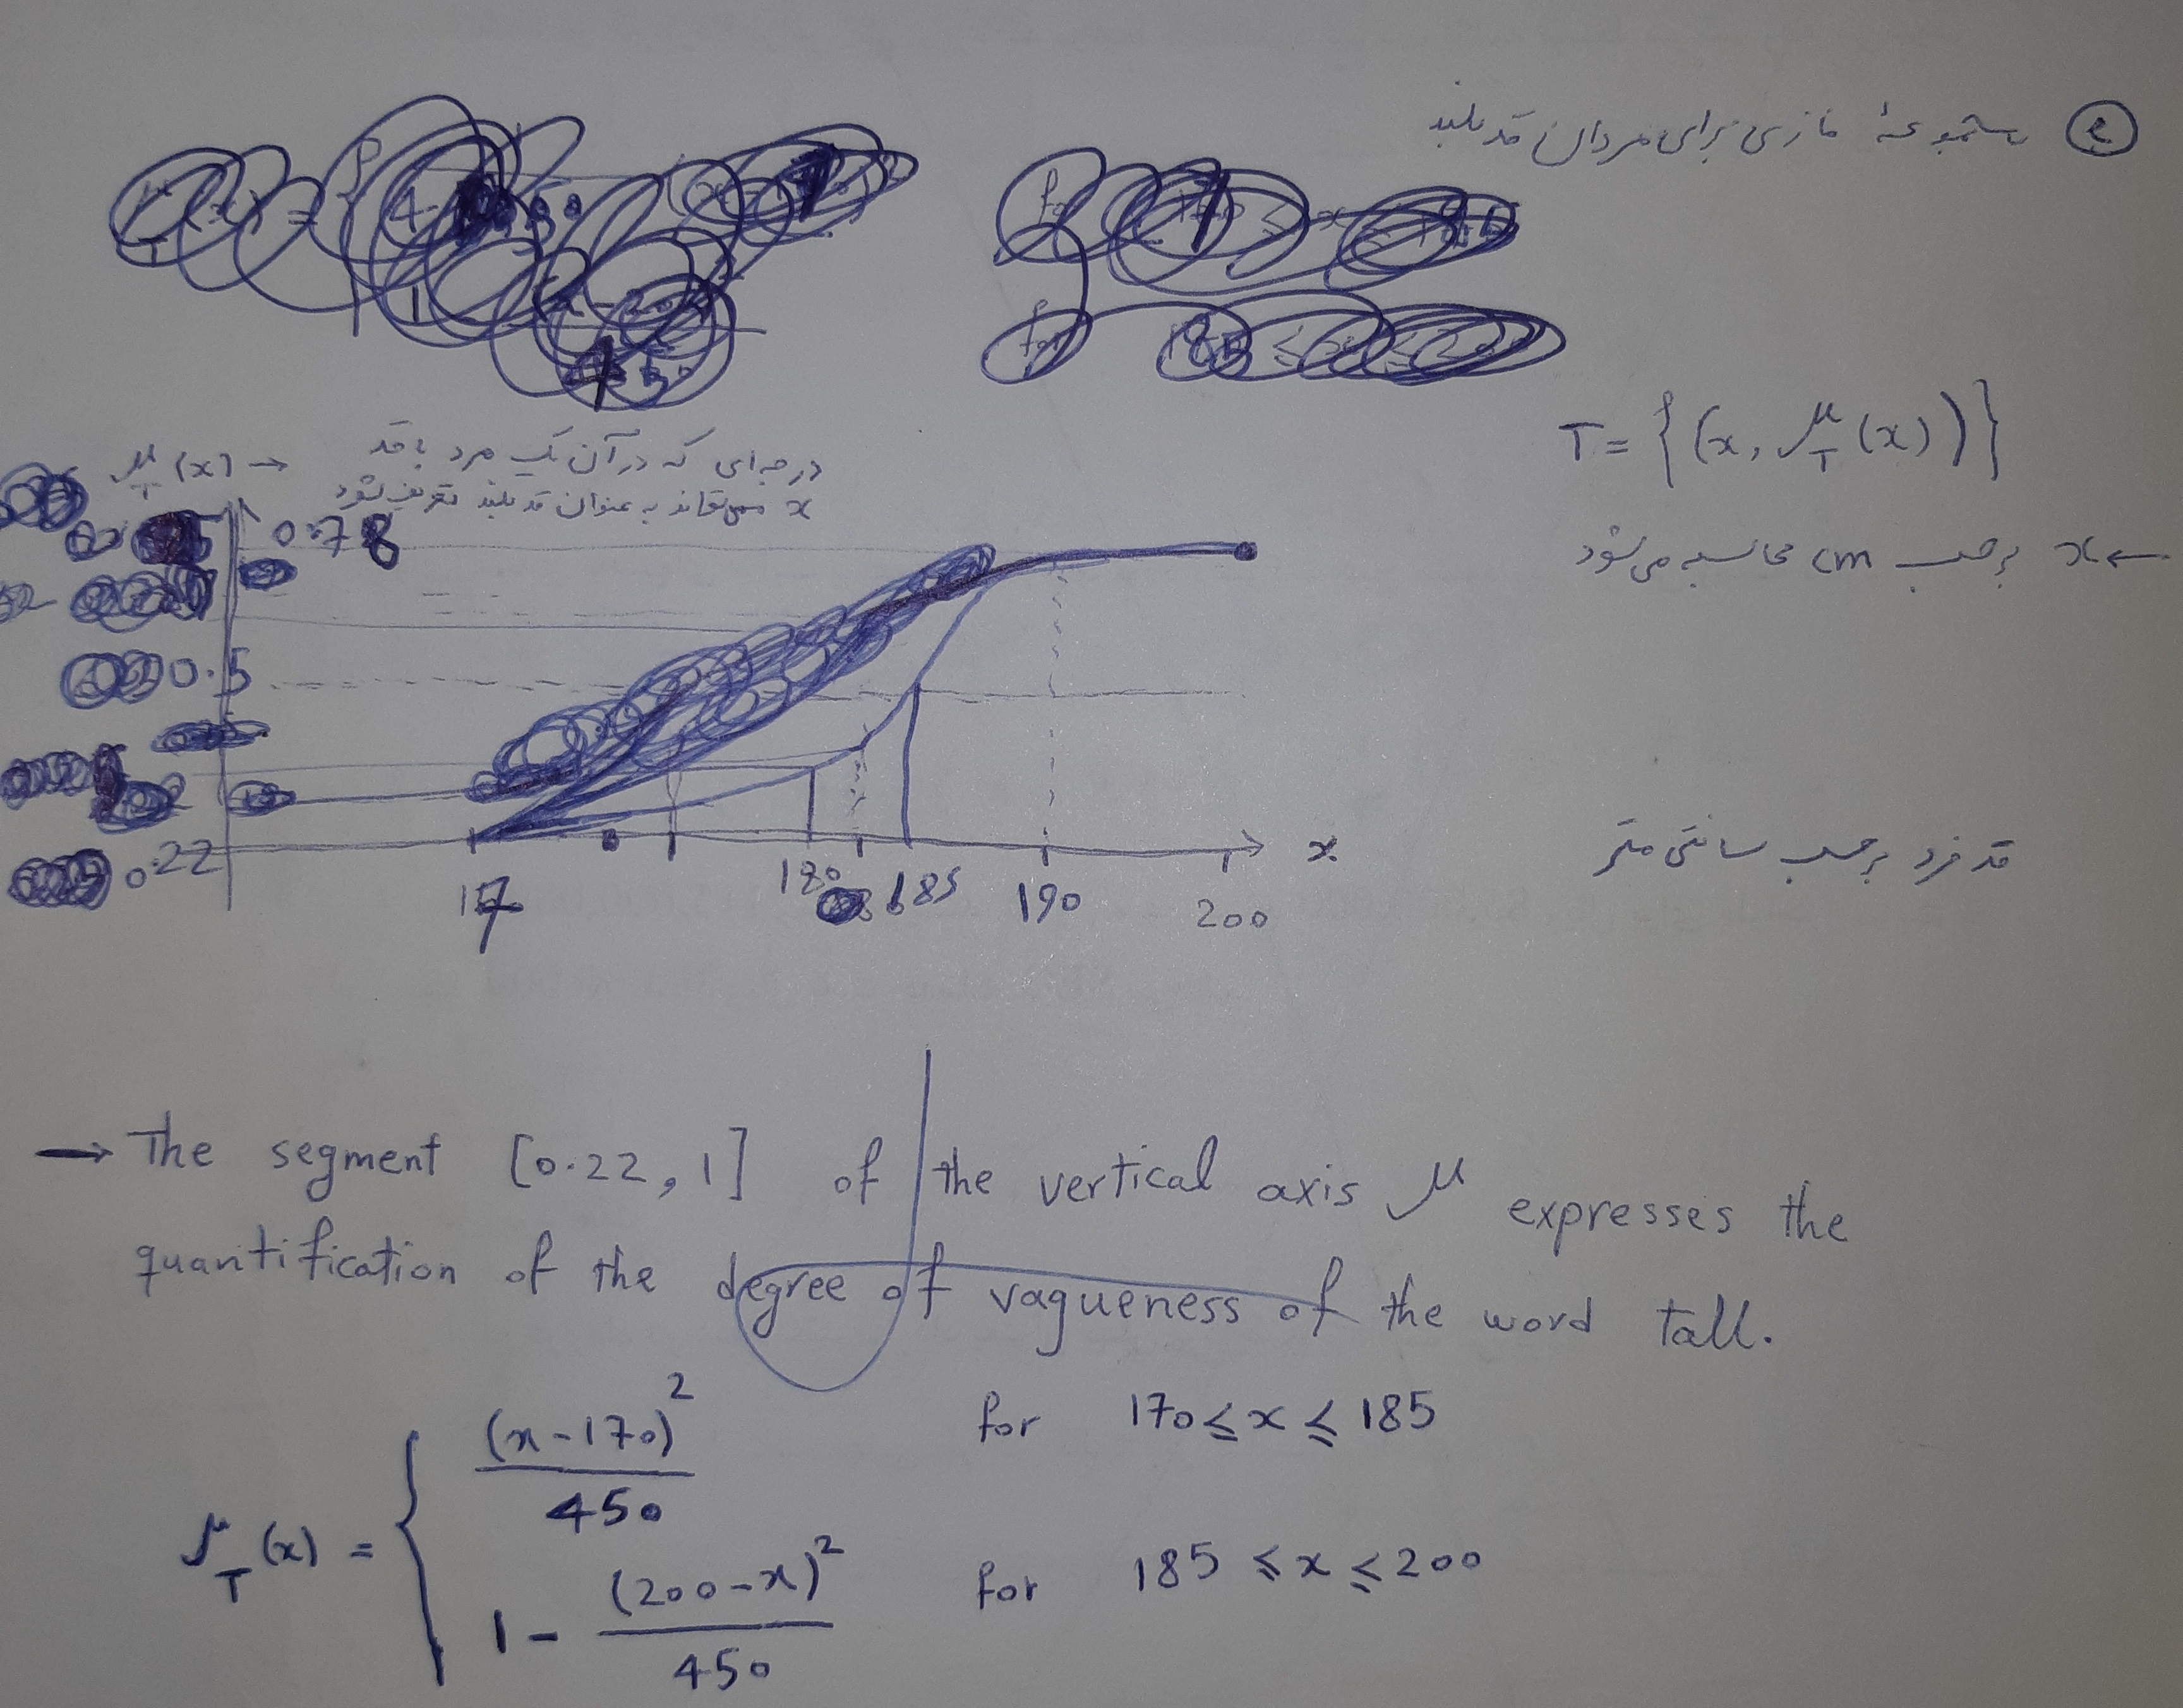 ② مجموعهٔ فازی برای مردان قد بلند
T = { (x, μ_T(x)) }
μ_T(x) → درجه‌ای که در آن یک مرد با قد
x می‌تواند به عنوان قد بلند تعریف شود
0.78
← x برحسب cm محاسبه می‌شود
0.5
0.22
x
قد فرد برحسب سانتی متر
17 180 185 190 200
→ The segment [0.22, 1] of the vertical axis μ expresses the
quantification of the degree of vagueness of the word tall.
μ_T(x) = { (x-170)² / 450 for 170 ≤ x ≤ 185
1 - (200-x)² / 450 for 185 ≤ x ≤ 200